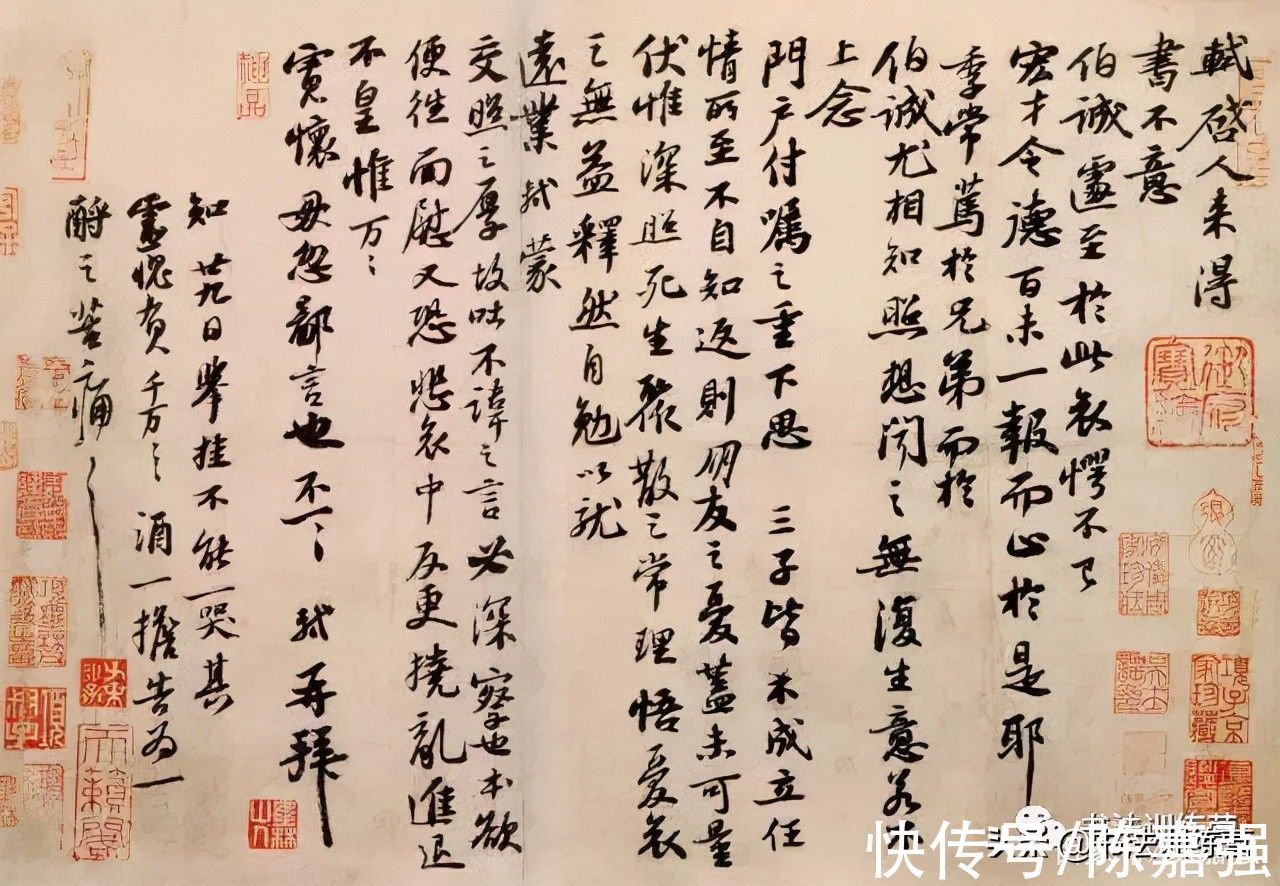 軾啓人来得
書不意
伯誠遽至於此哀愕不已
宏才令德百未一報而止於是耶
季常篤於兄弟而於
伯誠尤相知照想聞之無復生意若不
上念
門户付囑之重下思 三子皆未成立任
情所至不自知返則朋友之憂蓋未可量
伏惟深照死生聚散之常理悟憂哀
之無益釋然自勉以就
遠業 軾蒙
交照之厚故吐不諱之言必深察也本欲
便往面慰又恐悲哀中反更撓亂進退
不皇惟万〻
寬懷毋忽鄙言也不一〻 軾再拜
知廿九日舉挂不能一哭其
靈愧負千万〻酒一擔告为一
酹之苦痛〻
快传号/陈嘉强